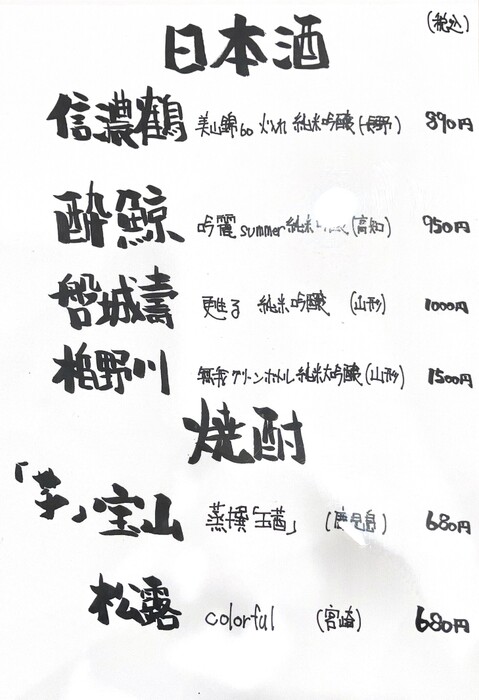 (税込)
日本酒
信濃鶴 美山錦60 火入れ 純米吟醸(長野) 890円
酔鯨 吟麗summer純米 (高知) 950円
磐城壽 甦る 純米吟醸 (山形) 1000円
楯野川 無我 グリーンボトル 純米大吟醸(山形) 1500円
焼酎
「芋」宝山 蒸撰「玉茜」 (鹿児島) 680円
松露 colorful (宮崎) 680円